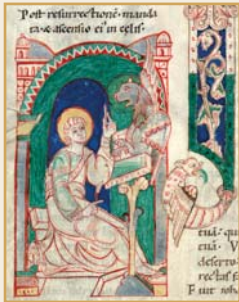 Post resurrectionē· manda
ta & ascensio ei' in celis·
tuā· qui
tuā· V
deserto·
rectas
Fuit ioh